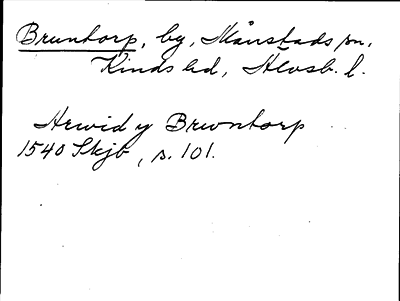 Bruntorp, by, Månstads sn,
Kinds hd, Älvsb. l.
Hewid y Brwntorp
1540 Skjb, s. 101.